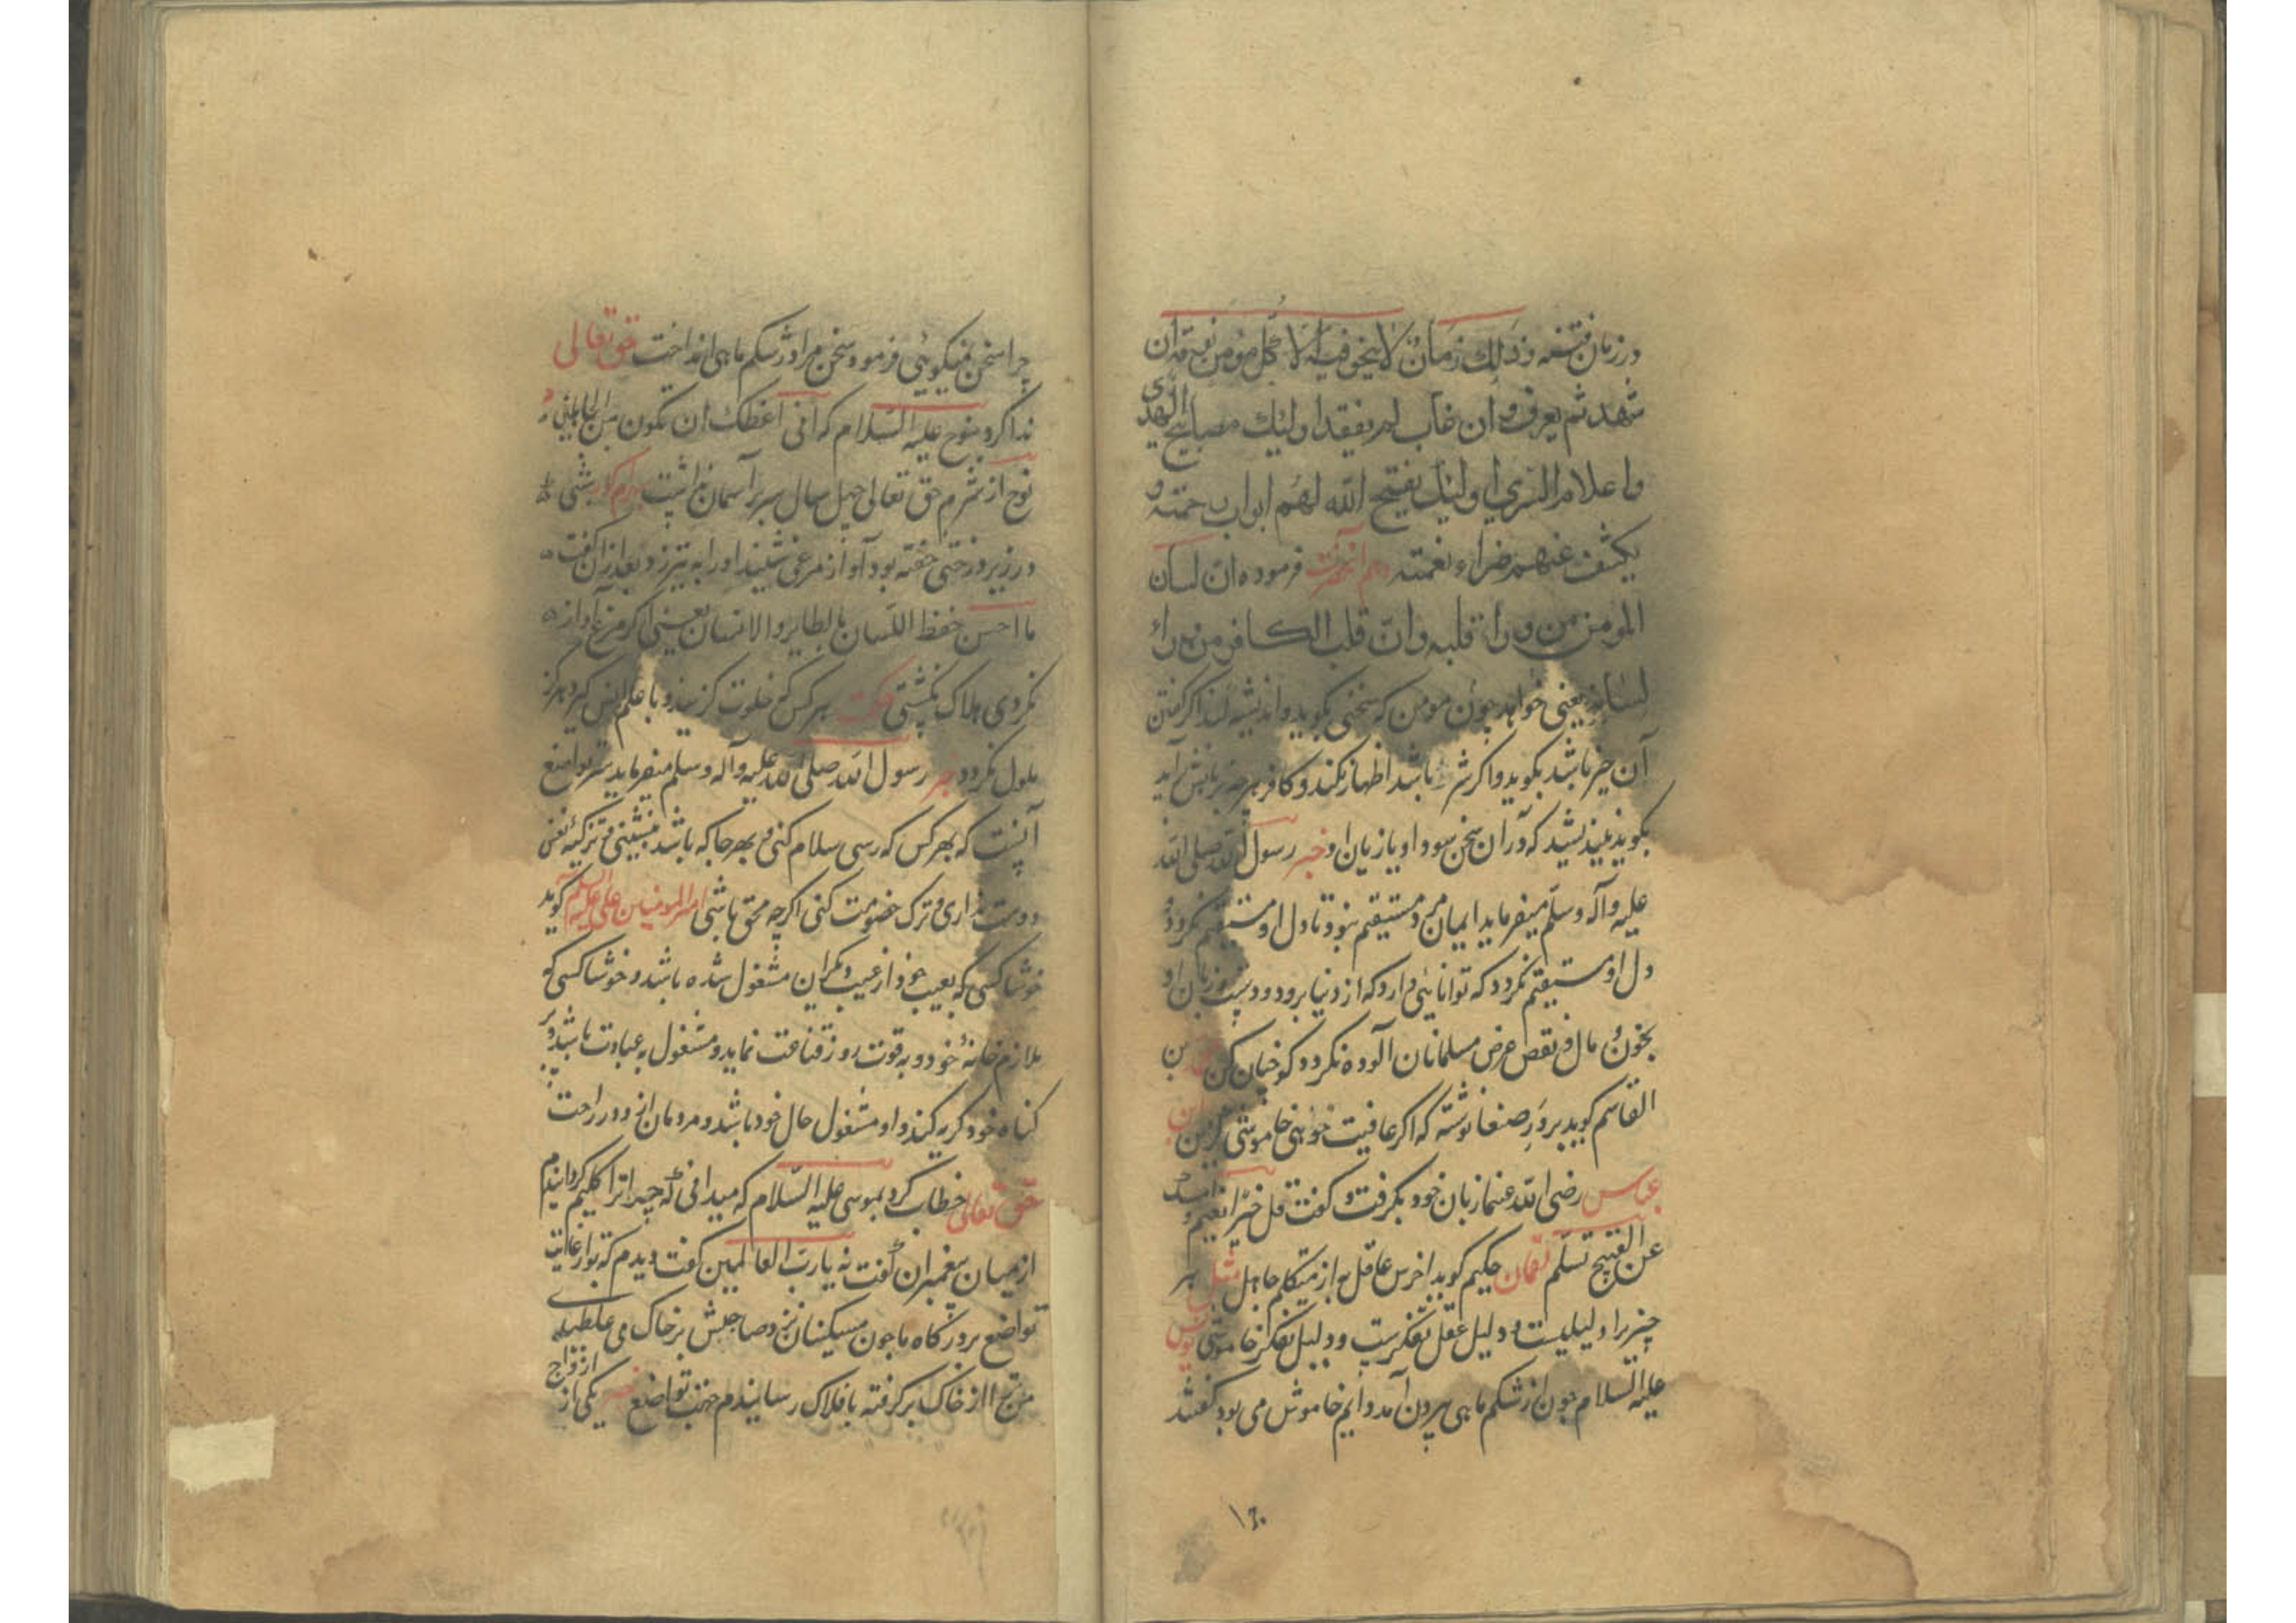 در زمان فتنه وذلک زمان لا ینجو فیه الا کل مومن نومة ان
شهد لم یعرف وان غاب لم یفقد اولئک مصابیح الهدی
واعلام السری اولئک یفتح الله لهم ابواب رحمته و
یکشف عنهم ضراء نقمته وهم آنحضرت فرموده ان لسان
المومن من وراء قلبه وان قلب الکافر من وراء
لسانه یعنی خواهد چون مومن که سخنی بگوید واندیشه کند اگر گفتن
آن خیر باشد بگوید واگر شر باشد اظهار نکند وکافر هرچه بزبانش آید
بگوید نیندیشد که در آن سخن سود او یا زیان او خبر رسول الله صلی الله
علیه وآله وسلم میفرماید ایمان مرد مستقیم نبود تا دل او مستقیم نگردد و
دل او مستقیم نگردد که توانایی دارد که از دنیا برود ودست وزبان او
بخون و مال و نقص عرض مسلمانان آلوده نگردد کو چنان کن بن
القاسم گوید بر در صنعا نوشته که اگر عافیت خواهی خاموشی گزین ابن
عباس رضی الله عنهما زبان خود بگرفت و گفت قل خیرا تغنم و اسکت
عن القبیح تسلم لقمان حکیم گوید اخرس عاقل به از متکلم جاهل مثل هر
چیزیرا دلیلیست ودلیل عقل تفکرست ودلیل تفکر خاموشی یونس
علیه السلام چون از شکم ماهی بیرون آمد دایم خاموش می بود گفتند
چرا سخن نمیگویی فرمود سخن مرا در شکم ماهی انداخت حق تعالی
ندا کرد بنوح علیه السلام که انی اعظک ان تکون من الجاهلین
نوح از شرم حق تعالی چهل سال سر بر آسمان نداشت بهرام گور شبی
در زیر درختی خفته بود آواز مرغی شنید اورا به تیر زد وبعد از آن گفت
ما احسن حفظ اللسان بالطایر والانسان یعنی اگر مرغ آواز
نکردی هلاک نگشتی حکمت هرکس که خلوت گزیند وبا علم انس گیرد هرگز
ملول نگردد خبر رسول الله صلی الله علیه وآله وسلم میفرماید سر تواضع
آنست که بهر کس که رسی سلام کنی و بهر جا که باشد بنشینی و تزکیۀ نفس
دوست نداری و ترک خصومت کنی اگرچه محق باشی امیر المومنین علی علیه السلم گوید
خوشا کسی که بعیب خود از عیب دیگران مشغول شده باشد و خوشا کسی که
ملازم خانۀ خود و به قوت روز قناعت نماید و مشغول به عبادت باشد و بر
گناه خود گریه کند و او مشغول حال خود باشد و مردمان از و در راحت
حق تعالی خطاب کرد بموسی علیه السلام که میدانی که چرا ترا کلیم گردانیدم
از میان پیغمبران گفت نه یا رب العالمین گفت دیدم که تو از غایت
تواضع بر درگاه ما چون مسکینان نزد صاحبش بر خاک می غلطیدی
من ترا از خاک بر گرفته بافلاک رسانیدم جهت تواضع خبر یکی از ازواج
۱۶۰